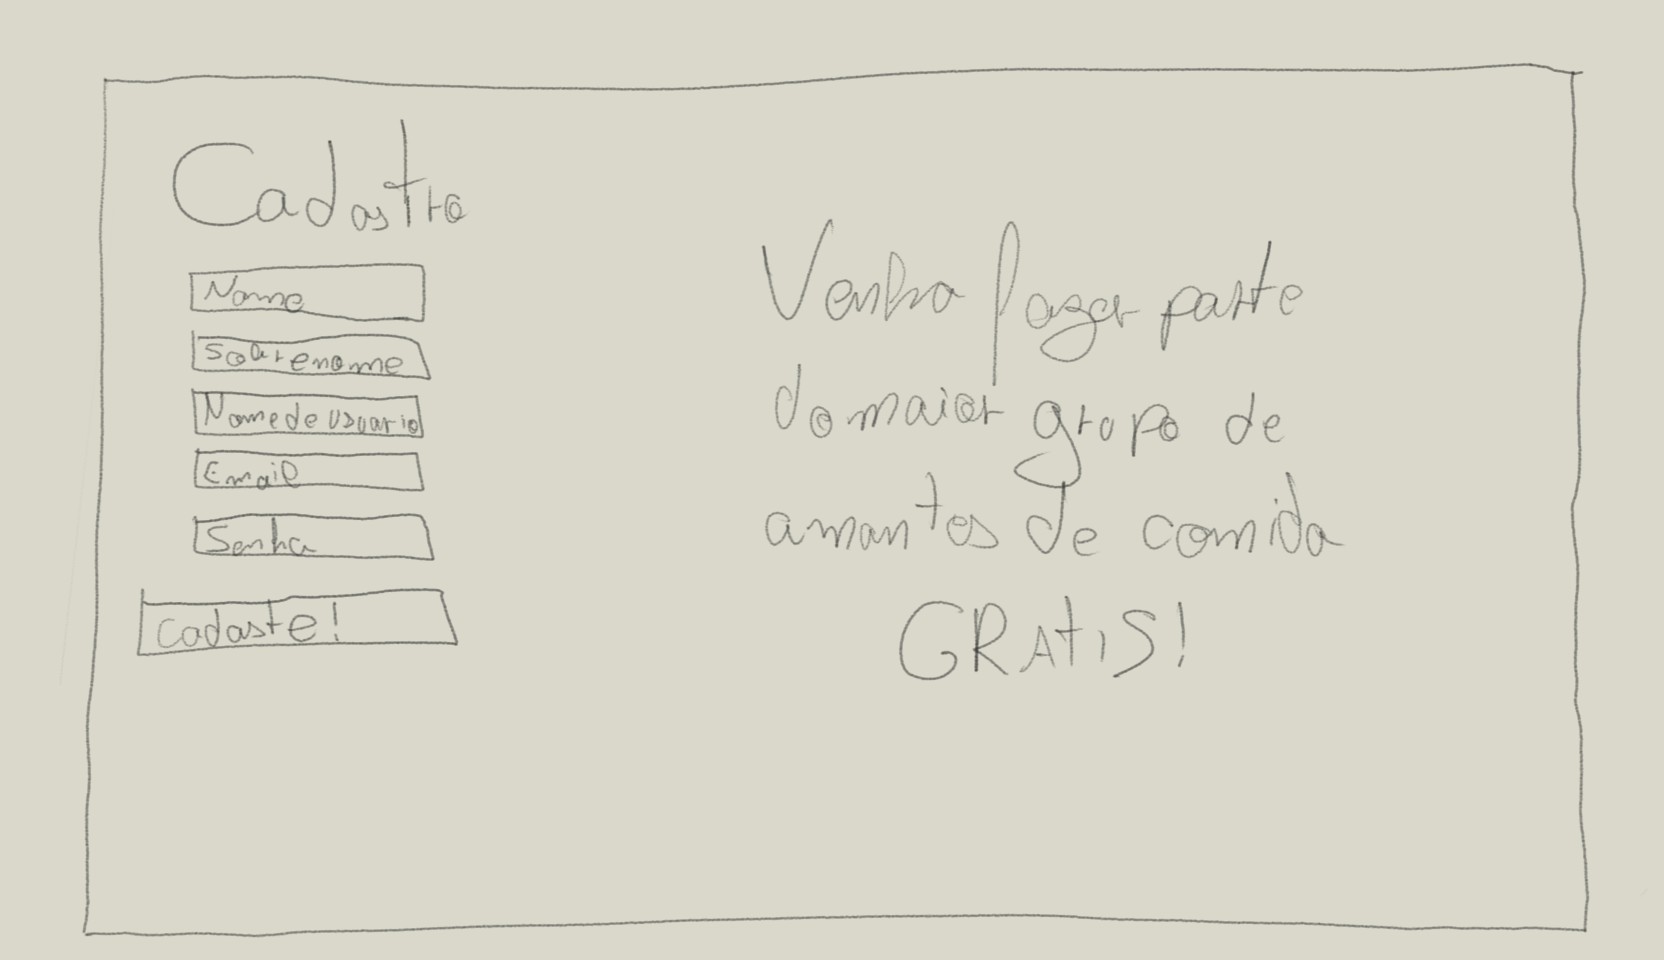 Cadastro
Nome
Sobrenome
Nome de usuario
Email
Senha
Cadaste!
Venha fazer parte
do maior grupo de
amantes de comida
GRATIS!